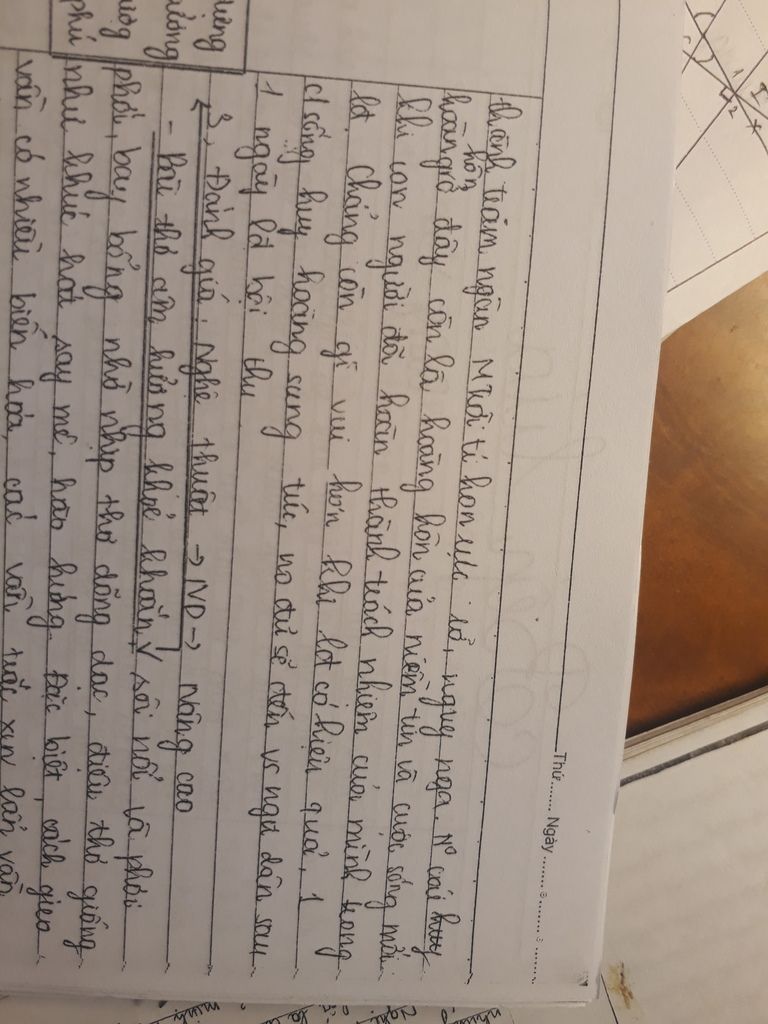 Thứ........ Ngày ........
thành trăm ngàn Mtrời tí hon rực rỡ, nguy nga. Nº cái huy
hoàng ở đây còn là hoàng hôn của niềm tin và cuộc sống mới
hôn
khi con người đã hoàn thành trách nhiệm của mình trong
lđ. Chẳng còn gì vui hơn khi lđ có hiệu quả, 1
c/sống huy hoàng sung túc, no đủ sẽ đến vs ngư dân sau
1 ngày lđ bội thu
3, Đánh giá: Nghệ thuật → ND → Nâng cao
- Bài thơ âm hưởng khoẻ khoắn, sôi nổi và phơi
phới, bay bổng nhờ nhịp thơ dõng dạc, điệu thơ giống
như khúc hát say mê, hào hứng. Đặc biệt, cách gieo
vần có nhiều biến hóa, các vần trắc xen lẫn vần